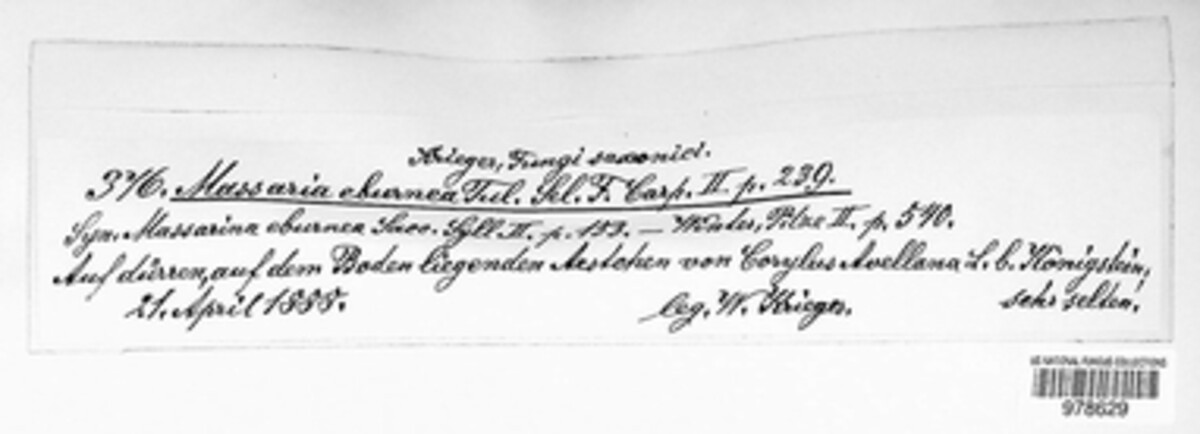 Krieger, Fungi saxonici.
376. Massaria eburnea Tul. Sel. F. Carp. II. p. 239.
Syn. Massarina eburnea Sacc. Syll. II. p. 153. — Winter, Pilze II. p. 540.
Auf dürren, auf dem Boden liegenden Aestchen von Corylus Avellana L. b. Königstein,
21. April 1888. leg. W. Krieger. sehr selten.
US NATIONAL FUNGUS COLLECTIONS
978629